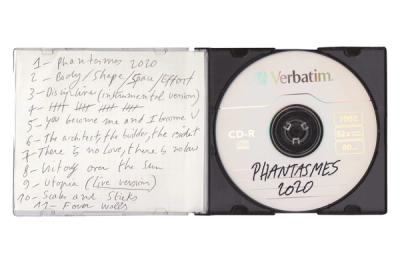 1 - Phantasmes 2020
2 - Body/Shape/Space/Effort
3 - Discipline (instrumental version)
4 - 
5 - you become me and I become U
6 - The architect, the builder, the resident
7 - There is no Love, there is no law
8 - Victory over the sun
9 - Utopia (Live version)
10 - Scales and Sticks
11 - Four Walls
Verbatim.
CD-R
700
52x
80
PHANTASMES
2020